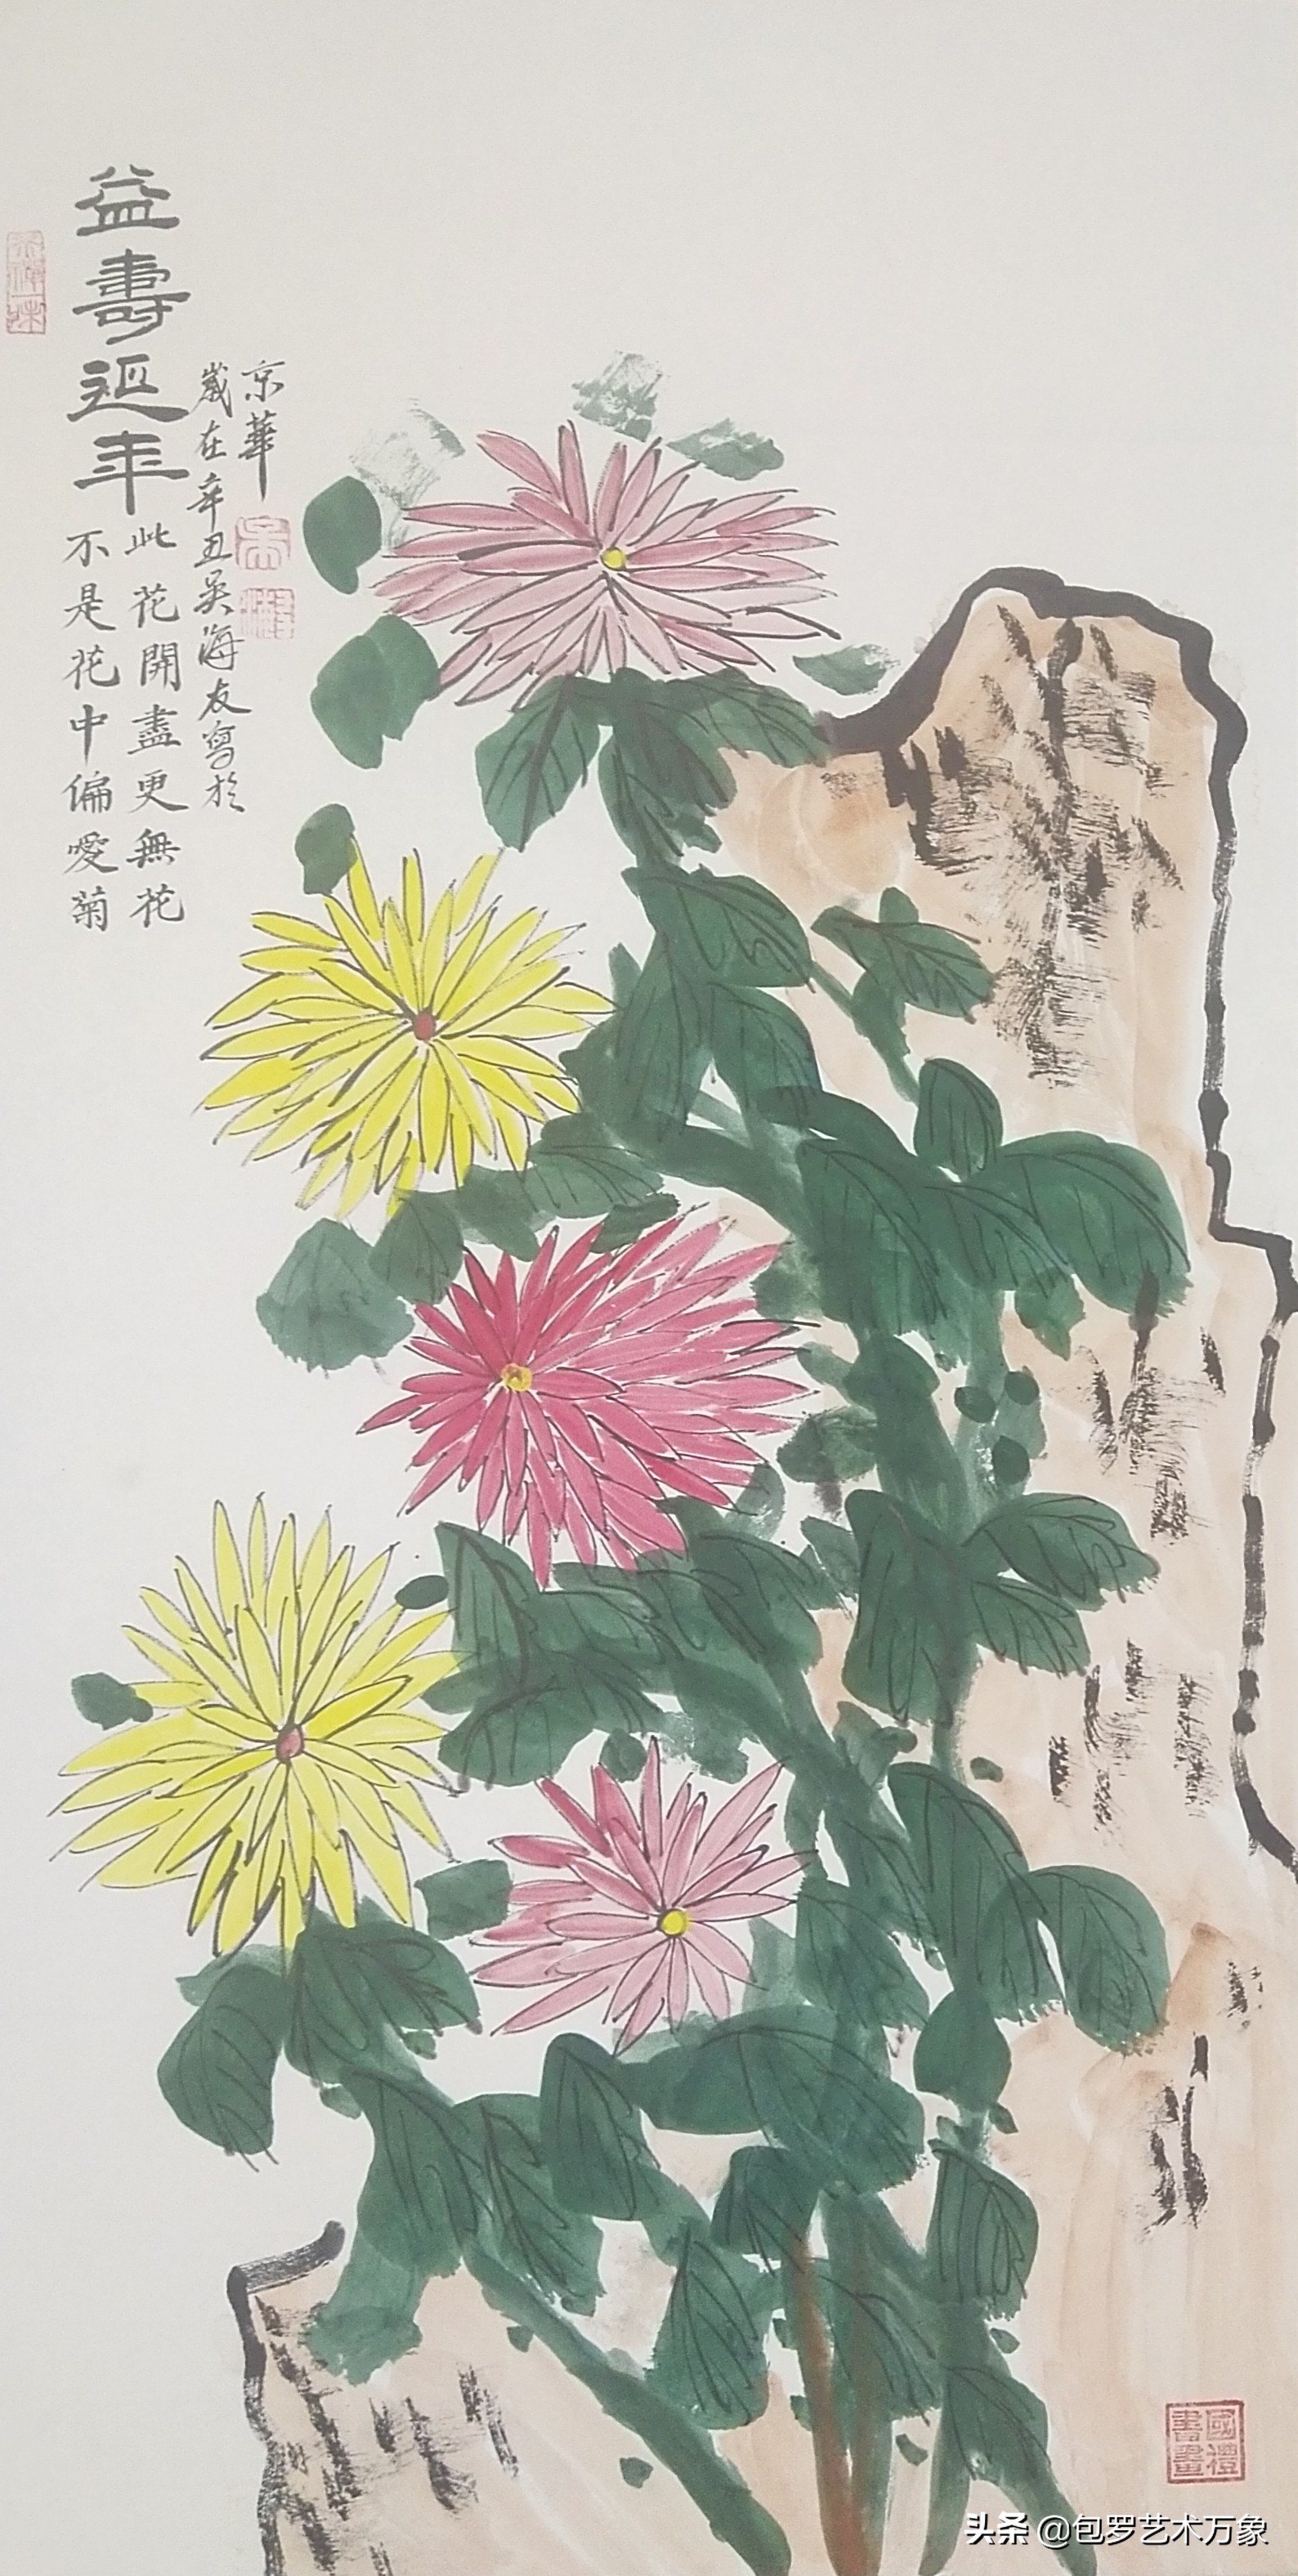 益壽延年
不是花中偏愛菊
此花開盡更無花
歲在辛丑吳海友寫於
京華
國禮
書畫
头条 @包罗艺术万象